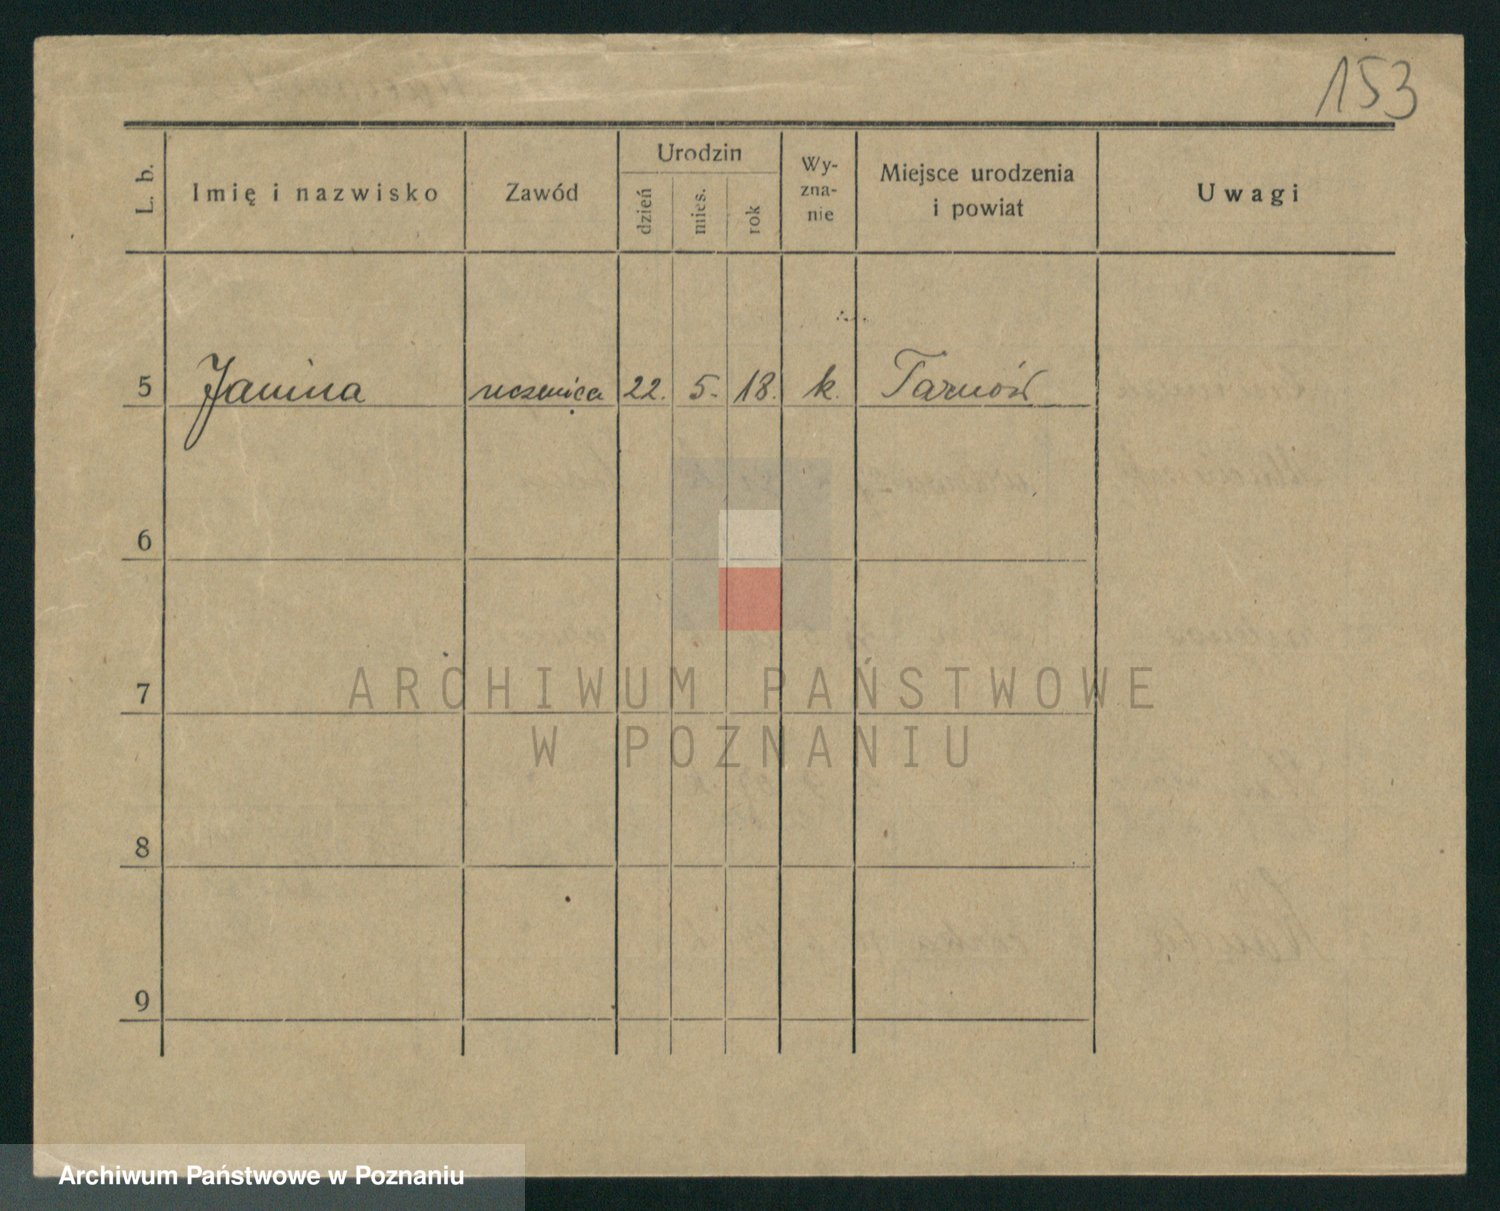 153
L. b.
Imię i nazwisko
Zawód
Urodzin
dzień
mies.
rok
Wy-
zna-
nie
Miejsce urodzenia
i powiat
Uwagi
5 Janina uczenica 22. 5. 18. k. Tarnów
6
7
8
9
ARCHIWUM PAŃSTWOWE
W POZNANIU
Archiwum Państwowe w Poznaniu